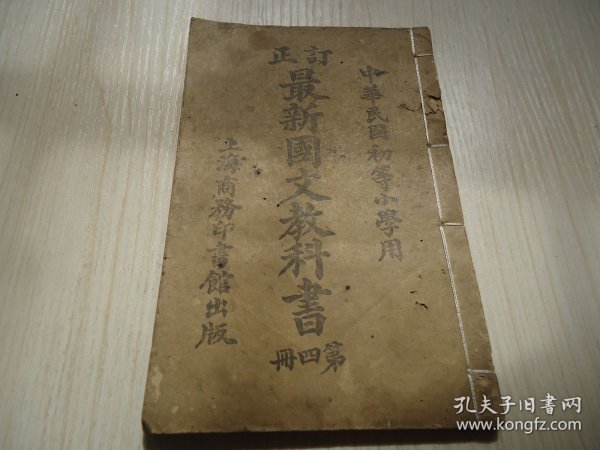 中華民國初等小學用
訂正
最新國文教科書
第四冊
上海商務印書館出版
孔夫子旧书网
www.kongfz.com